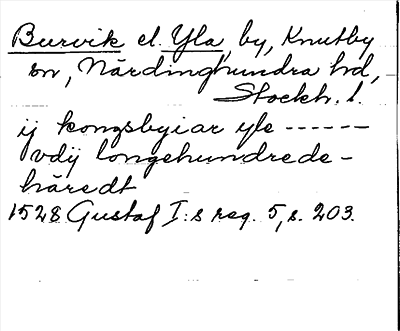 Burvik el. Yla, by, Knutby
sn, Närdinghundra hd,
Stockh. l.
ij kongsbyiar yle ------
vdij longehundrede-
häredt
1528 Gustaf I:s reg. 5, s. 203.